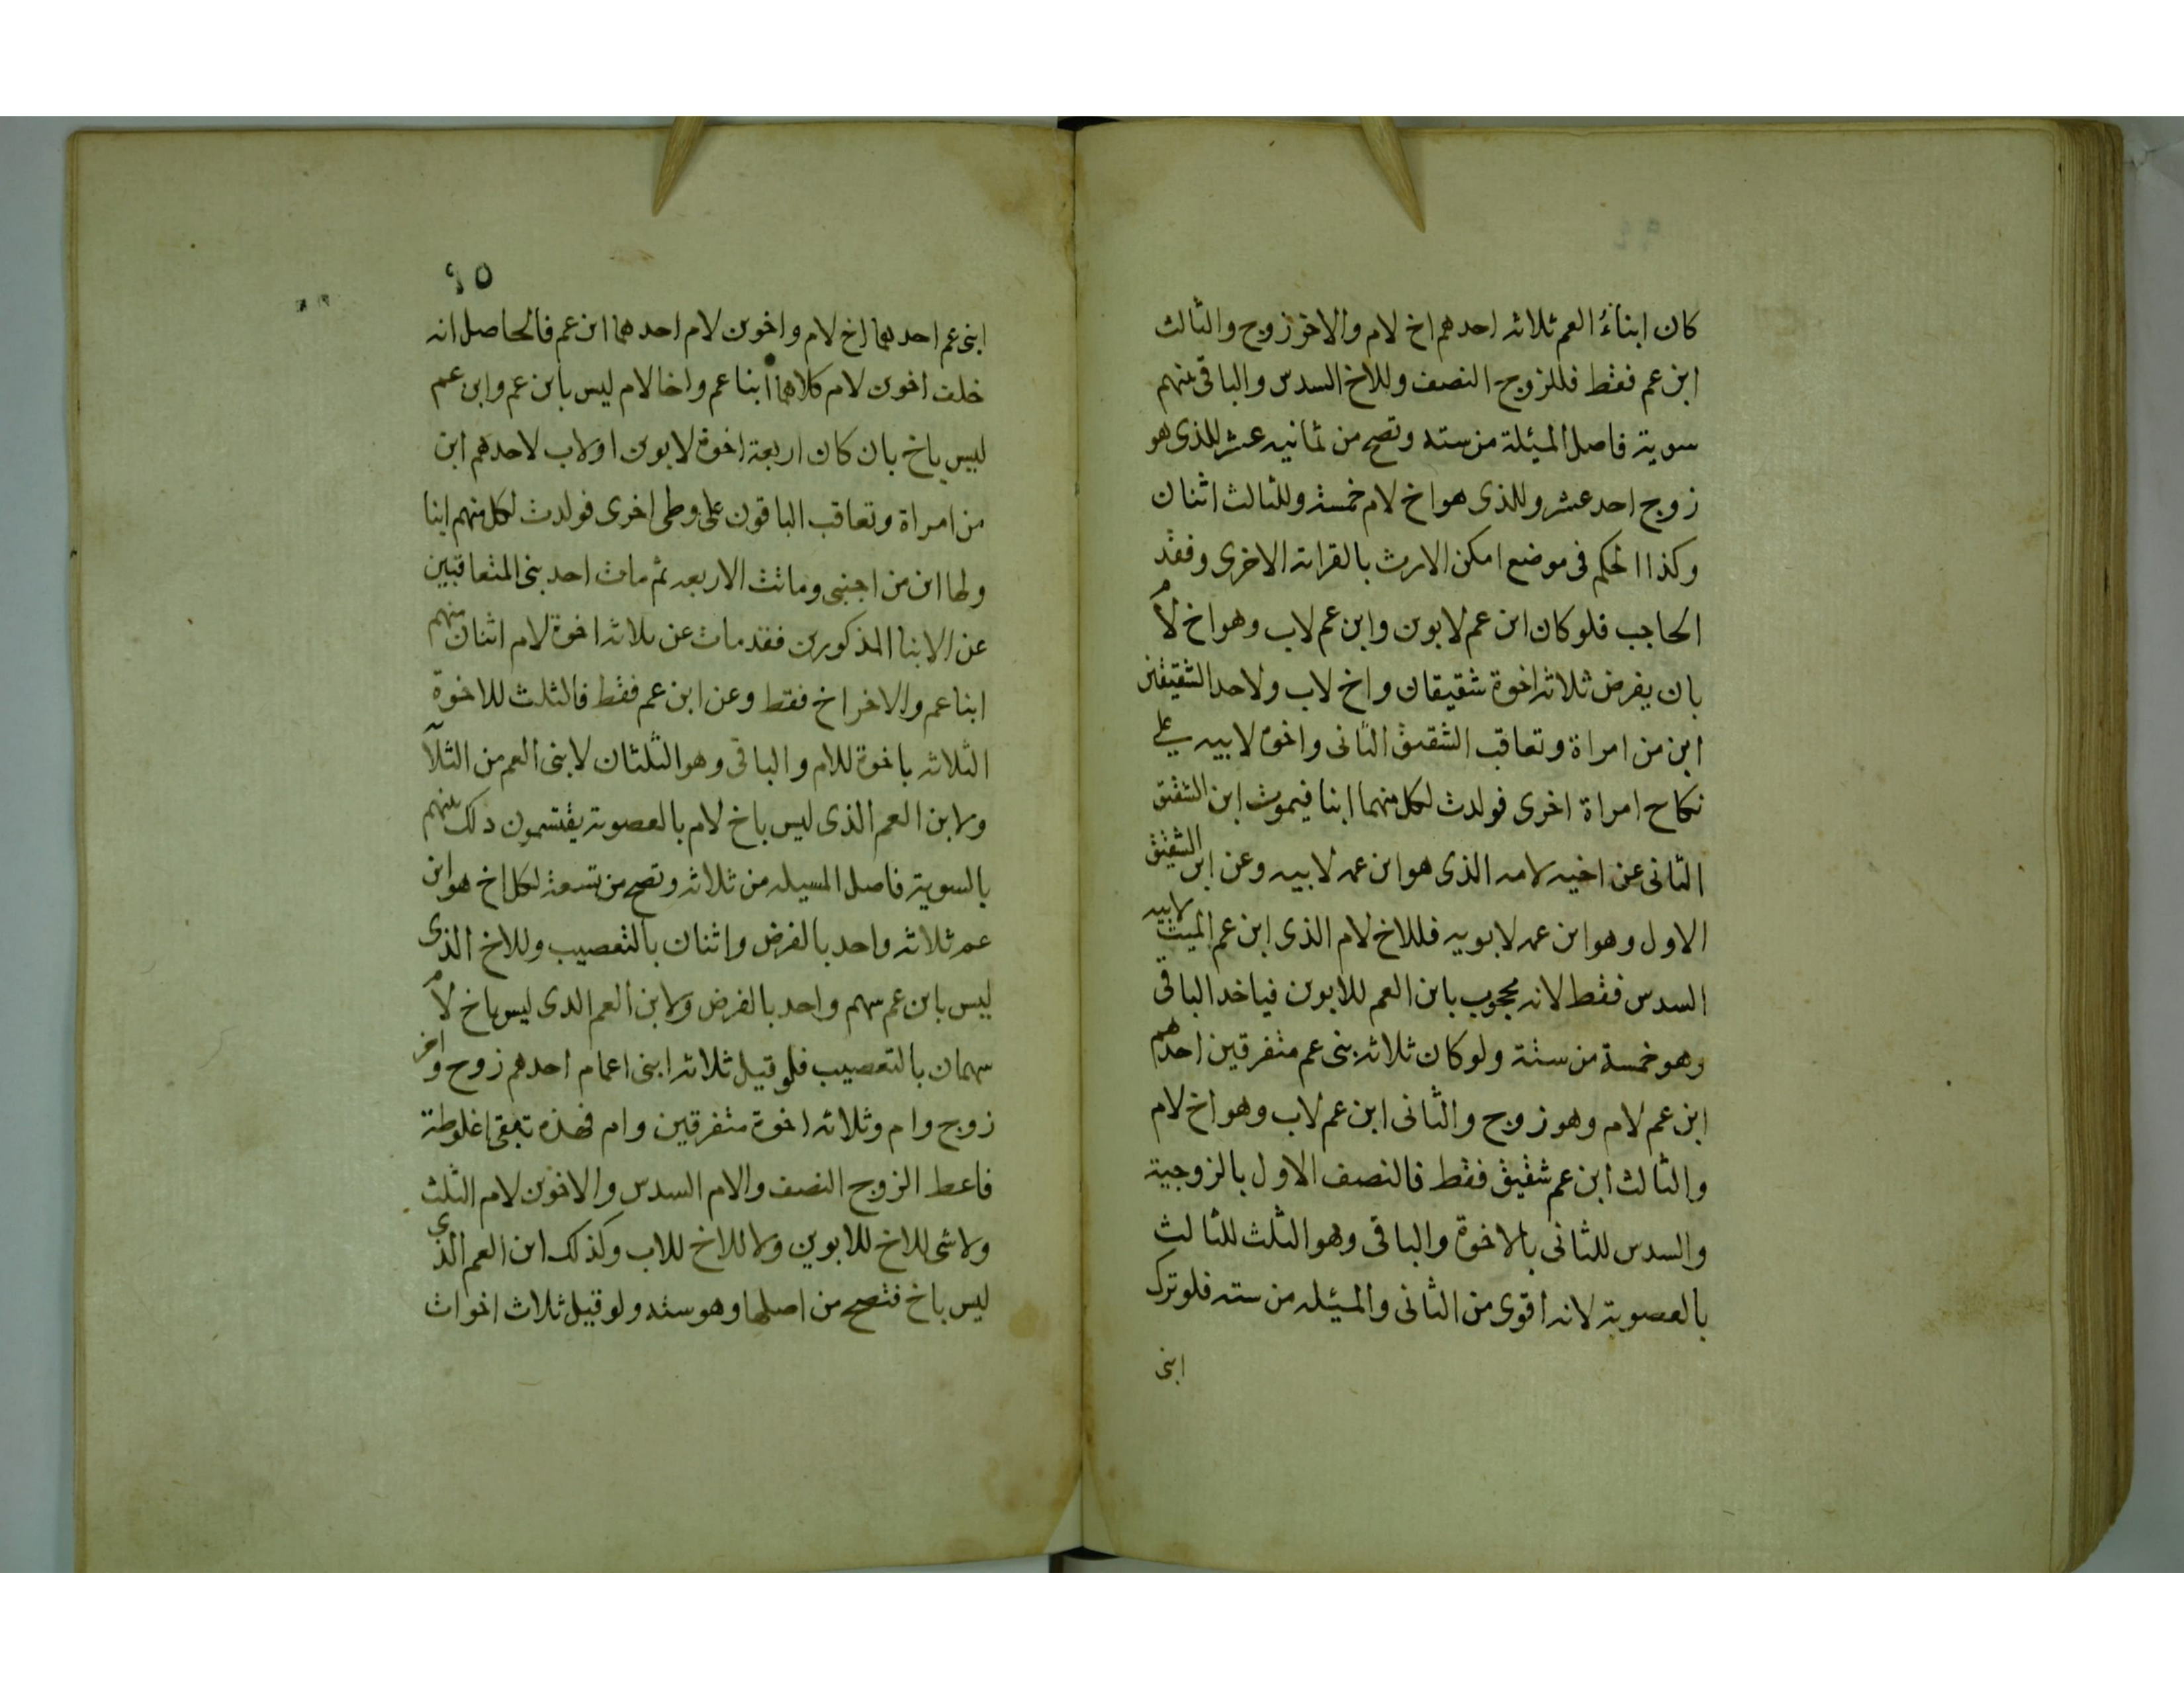 كان ابناء العم ثلاثه احدهم اخ لام والاخر زوج والثالث
ابن عم فقط فللزوج النصف وللاخ السدس والباقى بينهم
سوية فاصل المسئلة من سته وتصح من ثمانيه عشر للذى هو
زوج احد عشر وللذى هو اخ لام خمسة وللثالث اثنان
وكذا الحكم فى موضع امكن الارث بالقرابة الاخرى وفقد
الحاجب فلو كان ابن عم لابوين وابن عم لاب وهو اخ لام
بان يفرض ثلاثه اخوة شقيقان واخ لاب ولاحد الشقيقين
ابن من امراة وتعاقب الشقيق الثانى واخوه لابيه على
نكاح امراة اخرى فولدت لكل منهما ابنا فيموت ابن الشقيق
الثانى عن اخيه لامه الذى هو ابن عمه لابيه وعن ابن الشقيق
الاول وهو ابن عمه لابويه فللاخ لام الذى ابن عم الميت لابيه
السدس فقط لانه محجوب بابن العم للابوين فياخد الباقى
وهو خمسة من ستة ولو كان ثلاثه بنى عم متفرقين احدهم
ابن عم لام وهو زوج والثانى ابن عم لاب وهو اخ لام
والثالث ابن عم شقيق فقط فالنصف الاول بالزوجية
والسدس للثانى بالاخوة والباقى وهو الثلث للثالث
بالعصوبة لانه اقوى من الثانى والمسئله من سته فلو ترك
ابنى
٩٥
ابنى عم احدهما اخ لام واخوين لام احدهما ابن عم فالحاصل انه
خلف اخوين لام كلاهما ابنا عم واخا لام ليس بابن عم وابن عم
ليس باخ بان كان اربعة اخوة لابوين او لاب لاحدهم ابن
من امراة وتعاقب الباقون على وطى اخرى فولدت لكل منهم ابنا
ولها ابن من اجنبى وماتت الاربعه ثم مات احد بنى المتعاقبين
عن الابنا المذكورين فقد مات عن ثلاثه اخوة لام اثنان منهم
ابنا عم والاخر اخ فقط وعن ابن عم فقط فالثلث للاخوة
الثلاثه باخوة للام والباقى وهو الثلثان لابنى العم من الثلا
ولابن العم الذى ليس باخ لام بالعصوبة يقتسمون دلك بينهم
بالسوية فاصل المسيله من ثلاثه وتصح من تسعة لكل اخ هو ابن
عم ثلاثه واحد بالفرض واثنان بالتعصيب وللاخ الذى
ليس بابن عم سهم واحد بالفرض ولابن العم الدى ليس باخ لام
سهمان بالتعصيب فلو قيل ثلاثه ابنى اعمام احدهم زوج واخر
زوج وام وثلاثه اخوة متفرقين وام فهذه تبقى اغلوطة
فاعط الزوج النصف والام السدس والاخوين لام الثلث
ولا شى للاخ للابوين ولا للاخ للاب وكذلك ابن العم الذى
ليس باخ فتصح من اصلها وهو سته ولو قيل ثلاث اخوات